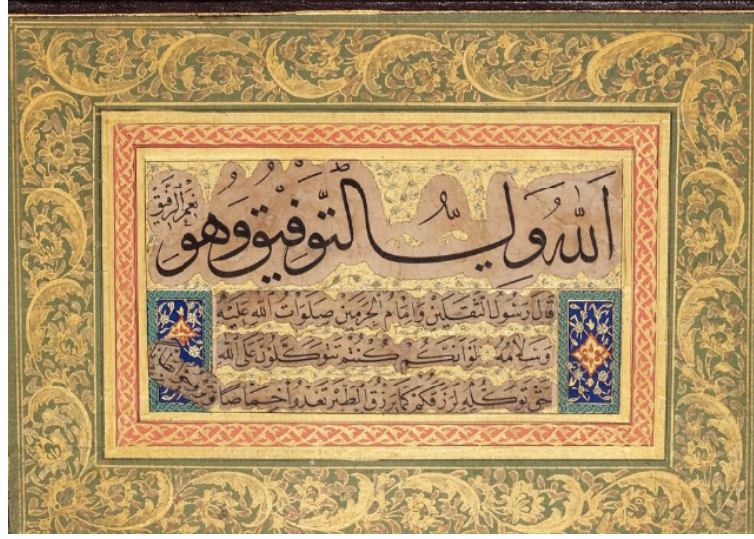 اَللّٰهُ وَلِيُّ التَّوْفِيقِ وَهُوَ
نِعْمَ الرَّفِيقُ
قَالَ رَسُولُ الثَّقَلَيْنِ وَاِمَامُ الْحَرَمَيْنِ صَلَوَاتُ اللّٰهِ عَلَيْهِ
وَسَلَامُهُ لَوْ اَنَّكُمْ كُنْتُمْ تَتَوَكَّلُونَ عَلَى اللّٰهِ
حَقَّ تَوَكُّلِهِ لَرَزَقَكُمْ كَمَا يَرْزُقُ الطَّيْرَ تَغْدُوا خِمَاصًا
وَتَرُوحُ بِطَانًا